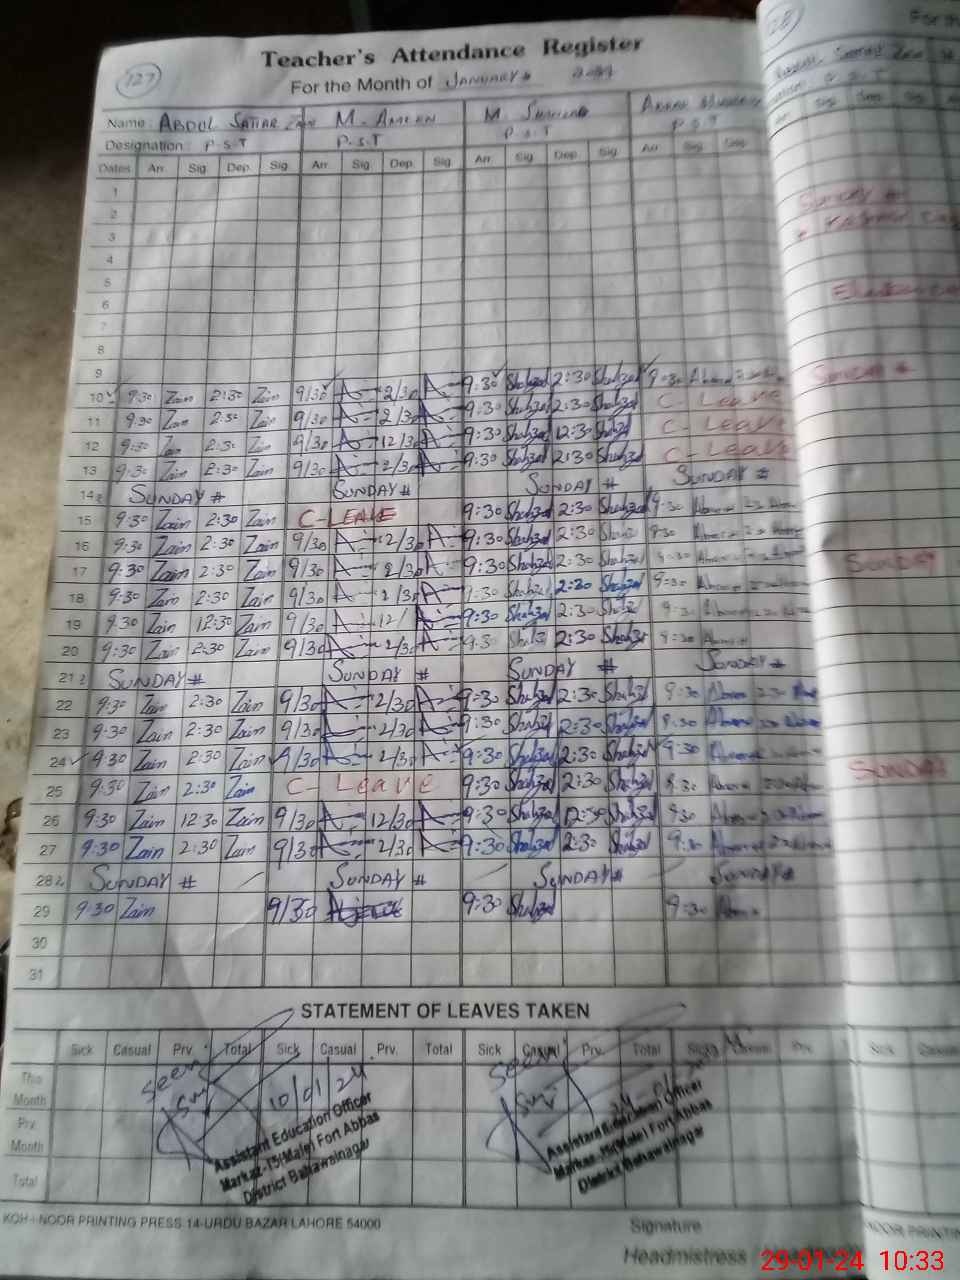 127
Teacher's Attendance Register
For the Month of January
Name: ABDUL SATTAR ZAIN M. AMEEN M. SHAHZAD
Designation: P.S.T P.S.T P.S.T P.S.T
Dates Arr. Sig. Dep. Sig. Arr. Sig. Dep. Sig Arr. Sig. Dep. Sig. Arr Sig. Dep.
1
2
3
4
5
6
7
8
9
10 9:30 Zain 2:30 Zain 9/30 2/30 9:30 Shahzad 2:30 Shahzad 9:30
11 9:30 Zain 2:30 Zain 9/30 2/30 9:30 Shahzad 2:30 Shahzad C- Leave
12 9:30 Zain 2:30 Zain 9/30 12/30 9:30 Shahzad 12:30 Shahzad C- Leave
13 9:30 Zain 2:30 Zain 9/30 2/30 9:30 Shahzad 2:30 Shahzad C- Leave
14 SUNDAY # SUNDAY # SUNDAY # SUNDAY #
15 9:30 Zain 2:30 Zain C-LEAVE 9:30 Shahzad 2:30 Shahzad 9:30
16 9:30 Zain 2:30 Zain 9/30 2/30 9:30 Shahzad 2:30 Shahzad 9:30
17 9:30 Zain 2:30 Zain 9/30 2/30 9:30 Shahzad 2:30 Shahzad 9:30
18 9:30 Zain 2:30 Zain 9/30 2/30 9:30 Shahzad 2:30 Shahzad 9:30
19 9:30 Zain 12:30 Zain 9/30 12/ 9:30 Shahzad 2:30 Shahzad 9:30
20 9:30 Zain 2:30 Zain 9/30 2/30 9:30 Shahzad 2:30 Shahzad 9:30
21 SUNDAY # SUNDAY # SUNDAY # SUNDAY #
22 9:30 Zain 2:30 Zain 9/30 2/30 9:30 Shahzad 2:30 Shahzad 9:30
23 9:30 Zain 2:30 Zain 9/30 2/30 9:30 Shahzad 2:30 Shahzad 9:30
24 9:30 Zain 2:30 Zain 9/30 2/30 9:30 Shahzad 2:30 Shahzad 9:30
25 9:30 Zain 2:30 Zain C- Leave 9:30 Shahzad 2:30 Shahzad 9:30
26 9:30 Zain 12:30 Zain 9/30 12/30 9:30 Shahzad 12:30 Shahzad 9:30
27 9:30 Zain 2:30 Zain 9/30 2/30 9:30 Shahzad 2:30 Shahzad 9:30
28 SUNDAY # SUNDAY # SUNDAY # SUNDAY #
29 9:30 Zain 9/30 9:30 Shahzad 9:30
30
31
STATEMENT OF LEAVES TAKEN
Sick Casual Prv. Total Sick Casual Prv. Total Sick Casual Prv. Total Sick Casual Prv.
This Month
Prv. Month
Total
Seen
10/01/24
Assistant Education Officer
Markaz-15(Male) Fort Abbas
District Bahawalnagar
Seen
Assistant Education Officer
Markaz-15(Male) Fort Abbas
District Bahawalnagar
KOH-I-NOOR PRINTING PRESS 14-URDU BAZAR LAHORE 54000
Signature
Headmistress
28
For th
SUNDAY #
SUNDAY #
SUNDAY
SUNDAY
Sick Casual
NOOR PRINTIN
29-01-24 10:33